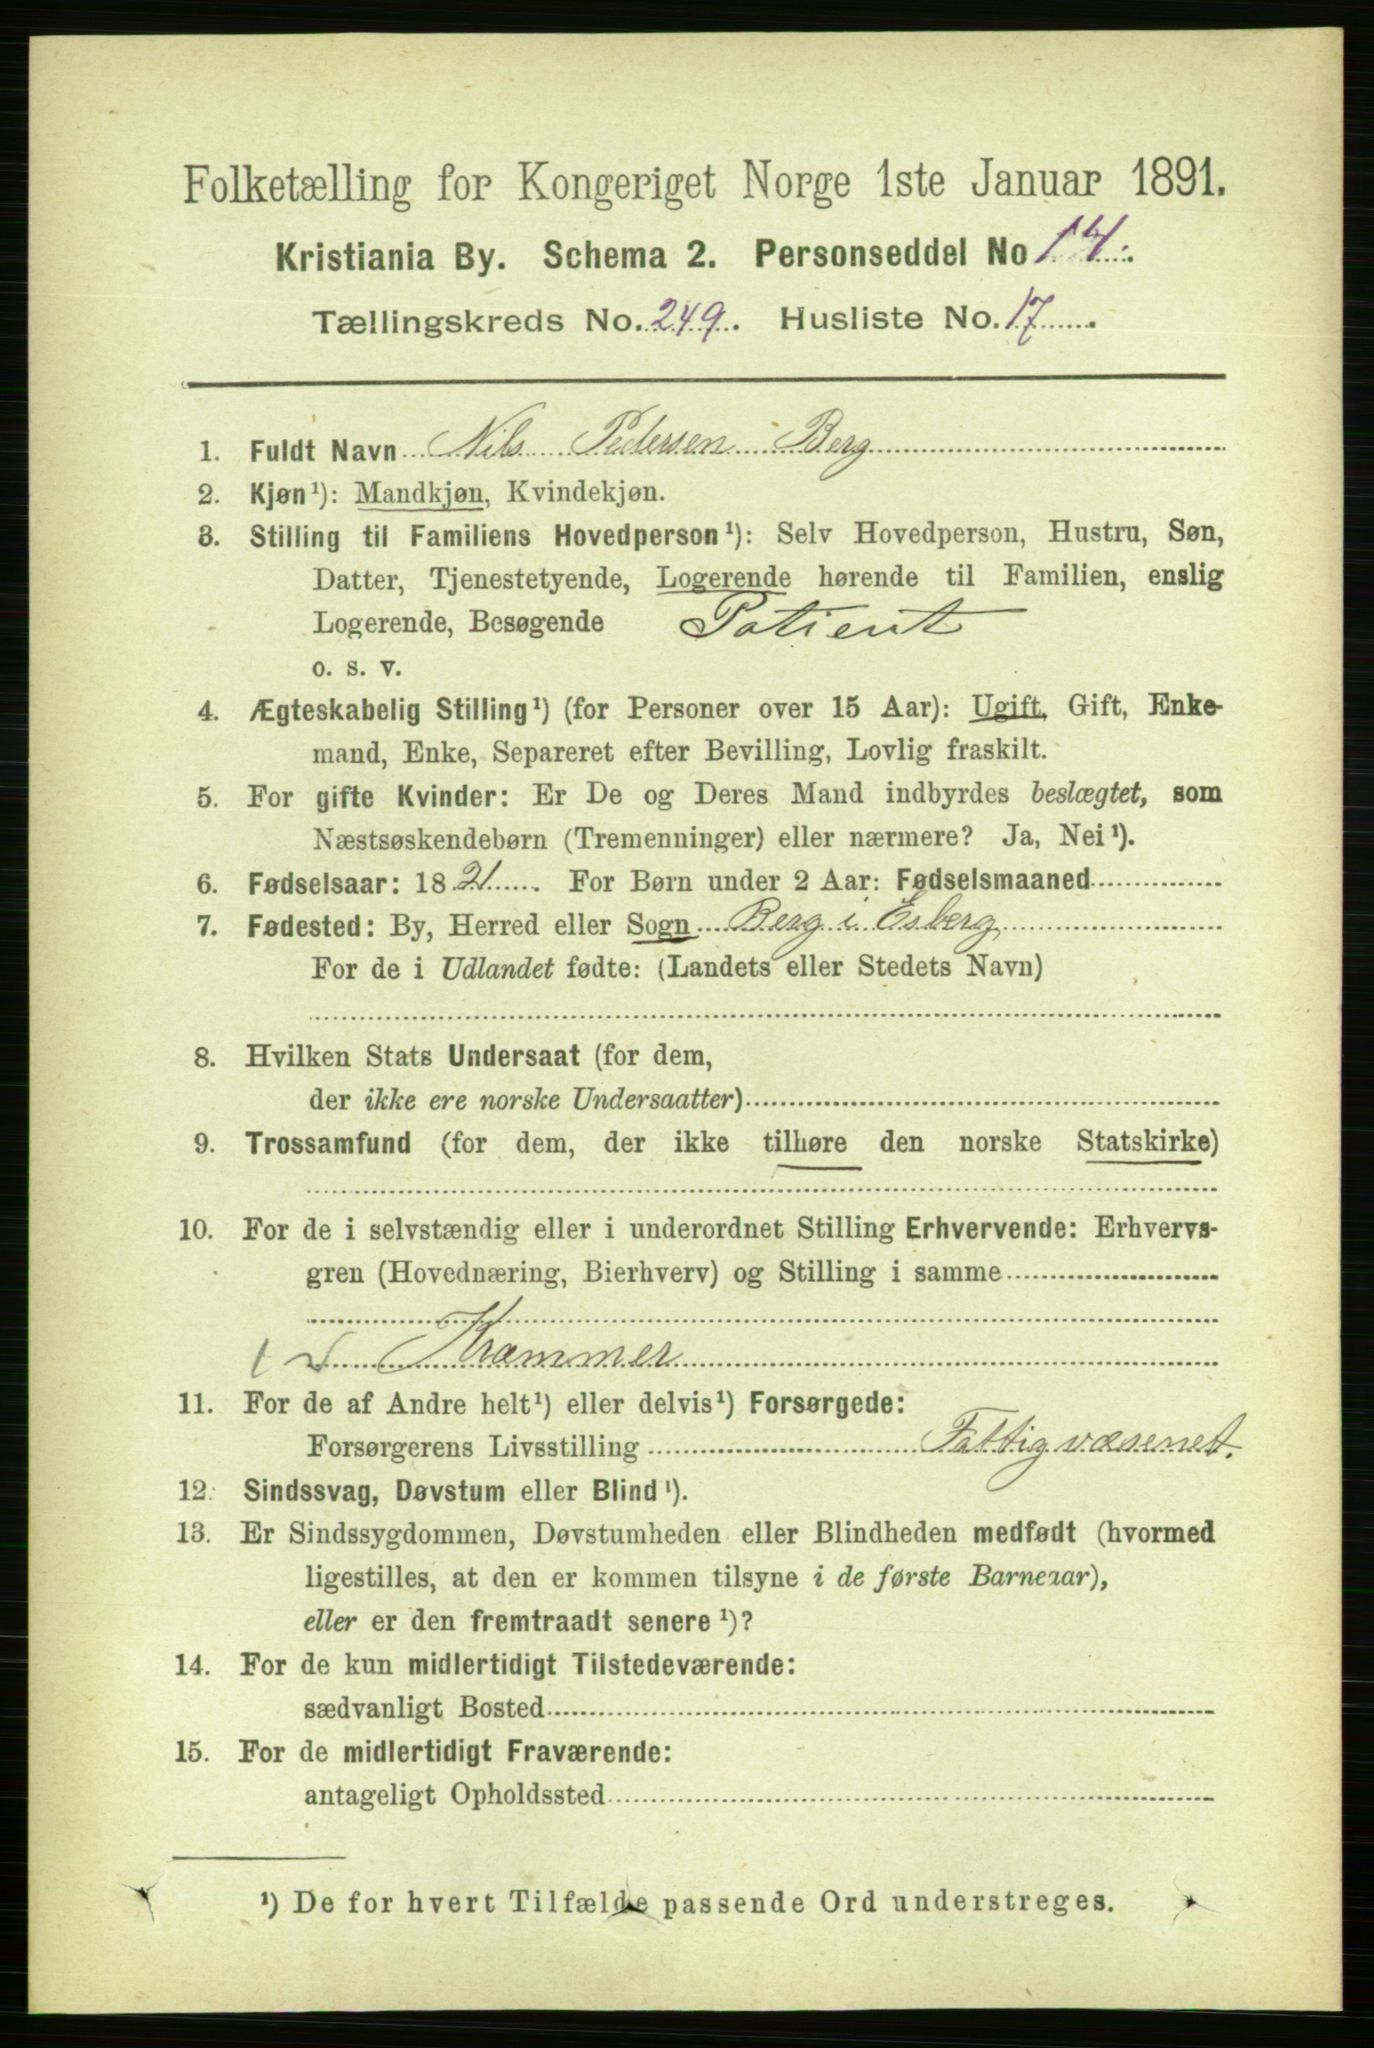 Folketælling for Kongeriget Norge 1ste Januar 1891.
Kristiania By. Schema 2. Personseddel No 14.
Tællingskreds No. 249. Husliste No. 17.
1. Fuldt Navn Nils Pedersen Berg
2. Kjøn¹): Mandkjøn, Kvindekjøn.
3. Stilling til Familiens Hovedperson¹): Selv Hovedperson, Hustru, Søn,
Datter, Tjenestetyende, Logerende hørende til Familien, enslig
Logerende, Besøgende Patient
o. s. v.
4. Ægteskabelig Stilling¹) (for Personer over 15 Aar): Ugift, Gift, Enke-
mand, Enke, Separeret efter Bevilling, Lovlig fraskilt.
5. For gifte Kvinder: Er De og Deres Mand indbyrdes beslægtet, som
Næstsøskendebørn (Tremenninger) eller nærmere? Ja, Nei¹).
6. Fødselsaar: 1821. For Børn under 2 Aar: Fødselsmaaned
7. Fødested: By, Herred eller Sogn Berg i Esberg
For de i Udlandet fødte: (Landets eller Stedets Navn)
8. Hvilken Stats Undersaat (for dem,
der ikke ere norske Undersaatter)
9. Trossamfund (for dem, der ikke tilhøre den norske Statskirke)
10. For de i selvstændig eller i underordnet Stilling Erhvervende: Erhvervs-
gren (Hovednæring, Bierhverv) og Stilling i samme
Kræmmer
11. For de af Andre helt¹) eller delvis¹) Forsørgede:
Forsørgerens Livsstilling Fattigvæsenet.
12. Sindssvag, Døvstum eller Blind¹).
13. Er Sindssygdommen, Døvstumheden eller Blindheden medfødt (hvormed
ligestilles, at den er kommen tilsyne i de første Barneaar),
eller er den fremtraadt senere¹)?
14. For de kun midlertidigt Tilstedeværende:
sædvanligt Bosted
15. For de midlertidigt Fraværende:
antageligt Opholdssted
¹) De for hvert Tilfælde passende Ord understreges.